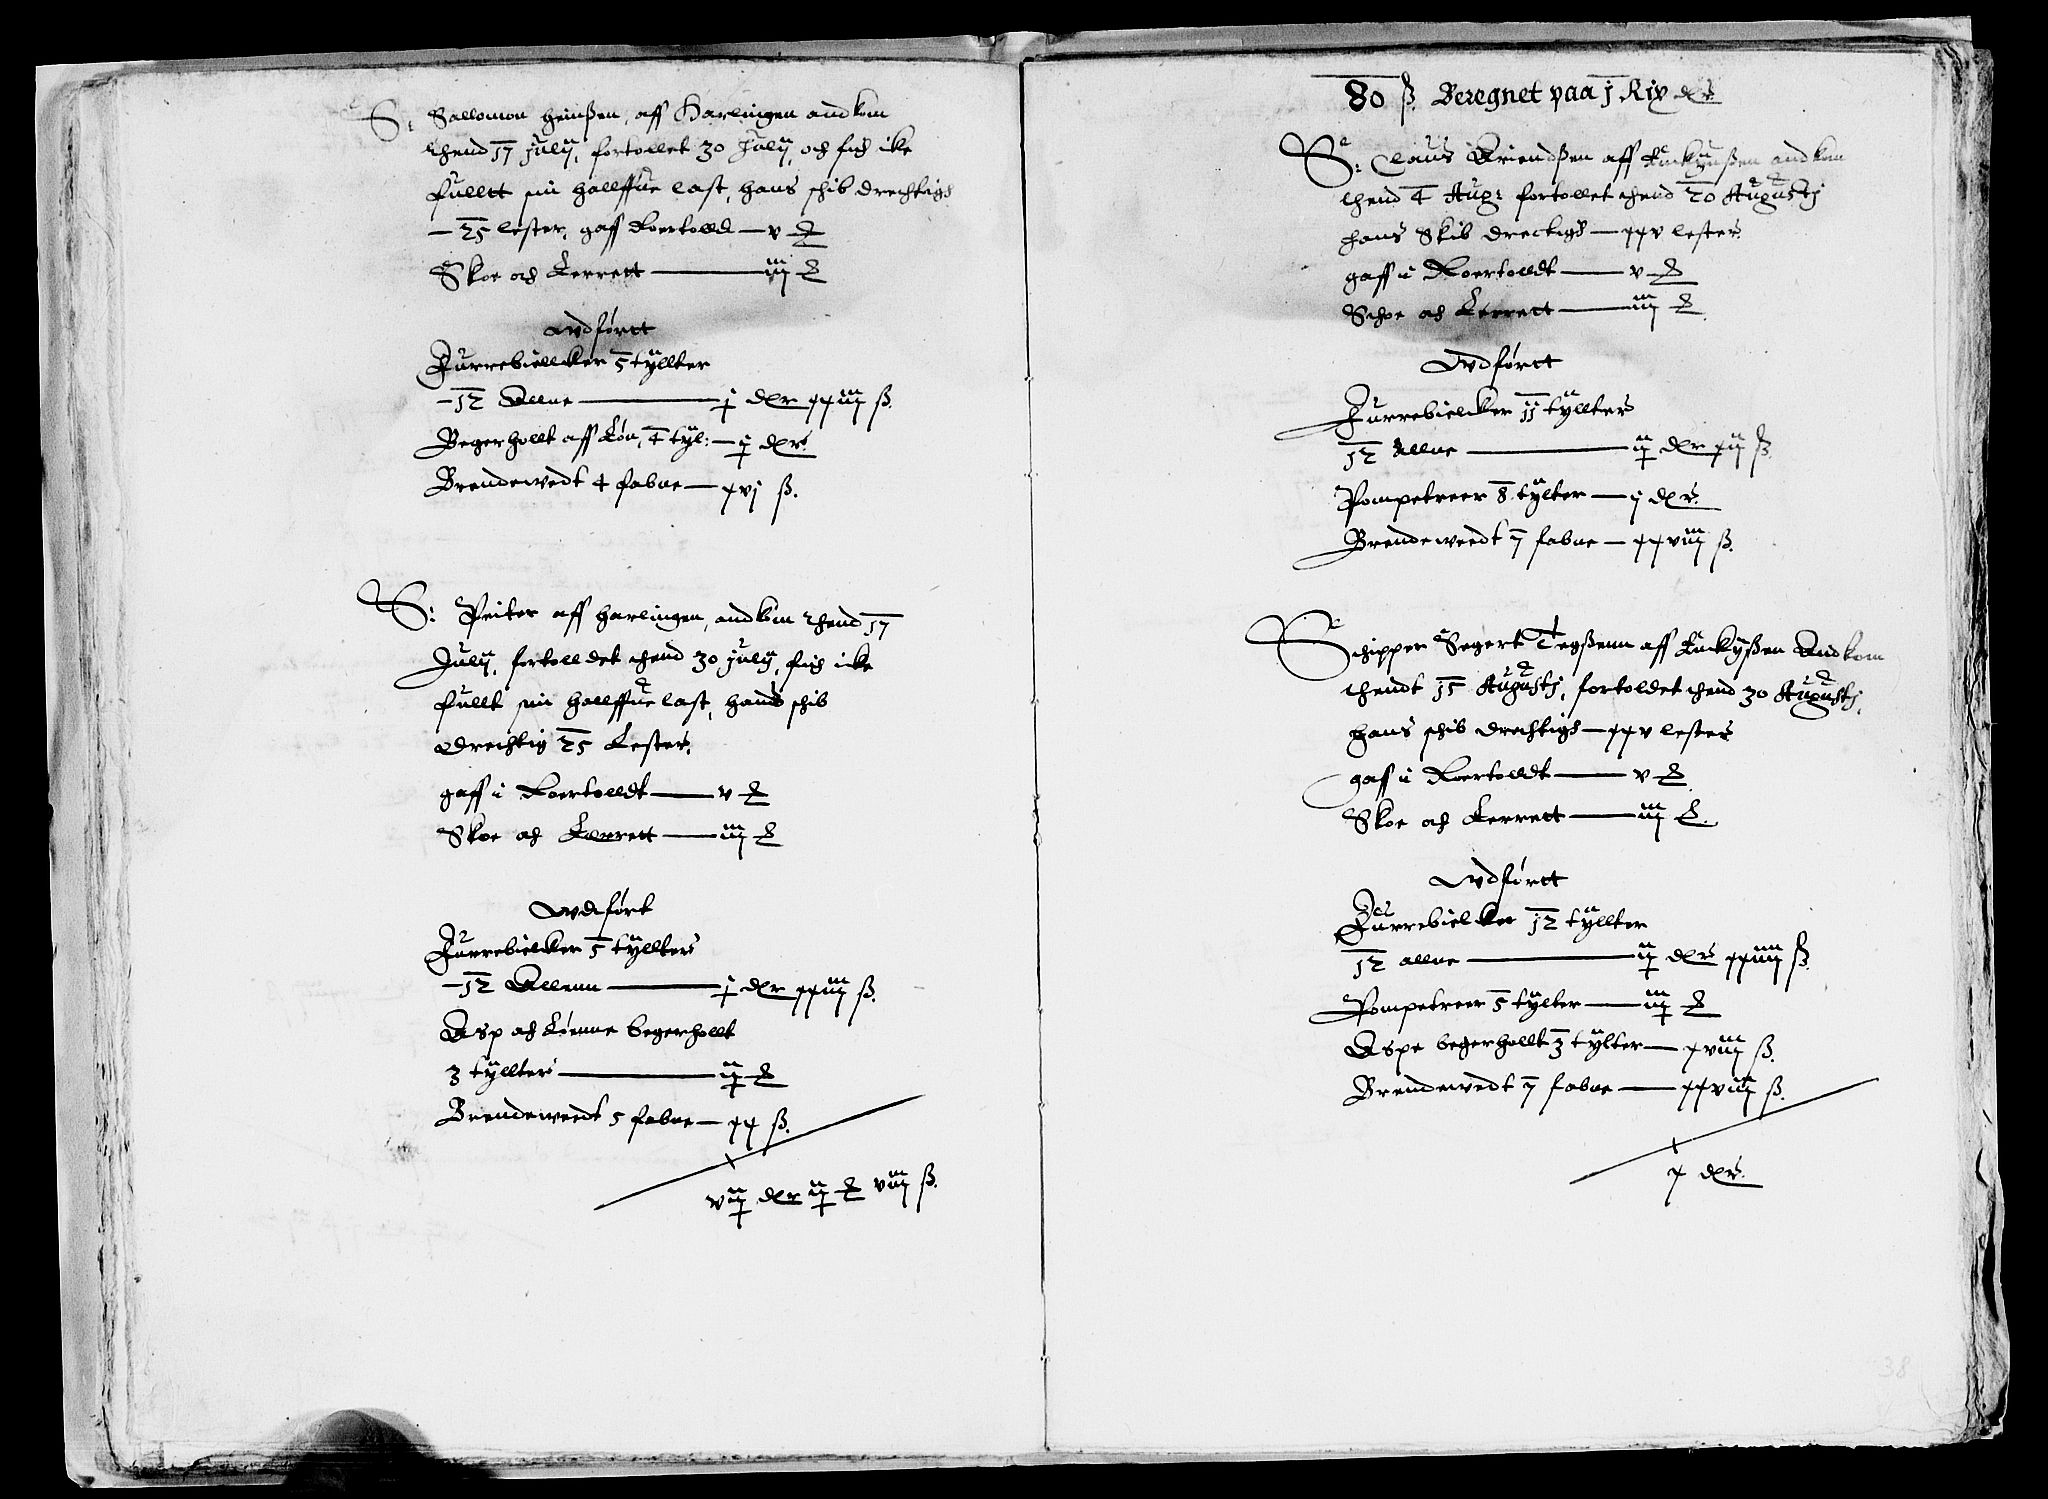 S: Sallomon Heinßen, aff Harlingen andkom
thend 17 July, fortollet 30 July, och fich ike
fullt sin hallffue last, hans schib drechtigh
– 25 lester, gaff Roertolld – v
Skoe och Kerrett – iiij
Wdførtt
Furrebiellcker 5 tyllter
– 12 Allne – j dlr xxiiij ß.
Begerhollt aff Løn, 4 tyl: – j dlr.
Brendewedt 4 fabne – xvj ß.
S: Peiter aff Harlingen, andkom thend 17
July, fortolldet thend 30 July, fich icke
fullt sin hallffue last, hans schib
drechtig 25 Lester,
gaff i Roertolldt – v
Skoe och Kerrett – iiij
Wdført
Furrebielcker 5 tyllter
– 12 Allenn – j dlr xxiiij ß.
Asp och Lønne begerhollt
3 tyllter – iij
Brendewedt 5 fabne – xx ß.
viij dlr iij viiij ß.
80 ß Beregnet paa j Rix dlr
S: Claus Ariendßen aff Enckyußen andkom
thend 4 Aug: fortollet thend 20 Augustj
hans Skib drectigh – xxv lester
gaff i Roertolldt – v
Schoe och Kerrett – iiij
Wdførtt
Furrebielcker 11 tyllter
12 allne – iij dlr xij ß.
Pompetreer 8 tylter – j dlr.
Brendeweedt 7 fabne – xxviij ß.
Schipper Segert Tegßenn aff Enckyßen Andkom
thendt 15 Augustj, fortoldet thend 30 Augustj,
hans schib drechtigh – xxv lester
gaff i Roertolldt – v
Skoe och Kerrett – iiij
Wdførtt
Furrebielcker 12 tyllter
12 allne – iij dlr xxiiij ß.
Pompetreer 5 tylter – iiij
Aspe begerhollt 3 tylter – xviij ß.
Brendewedt 7 fabne – xxviij ß.
x dlr.
38